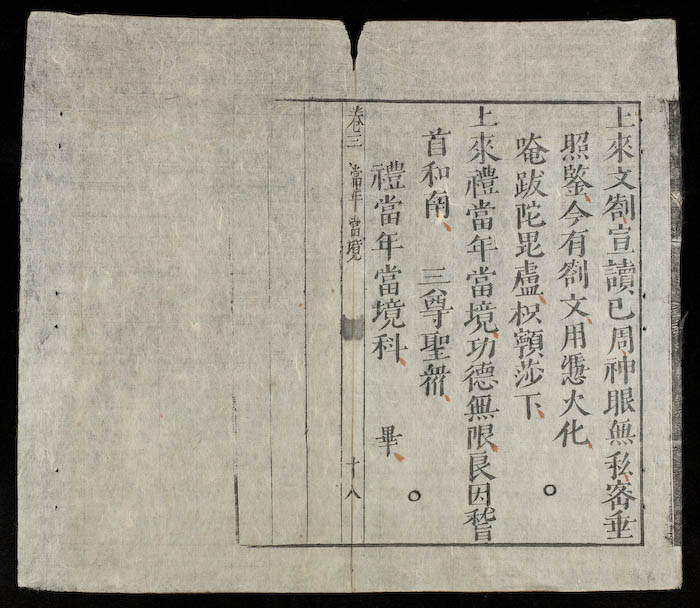 上來文劄宣讀已周神眼無私密垂
照鑒今有劄文用憑火化
唵跋陀毘盧枳顐莎下
上來禮當年當境功德無限良因稽
首和南 三尊聖衆
禮當年當境科 畢
卷三 當年當境 十八